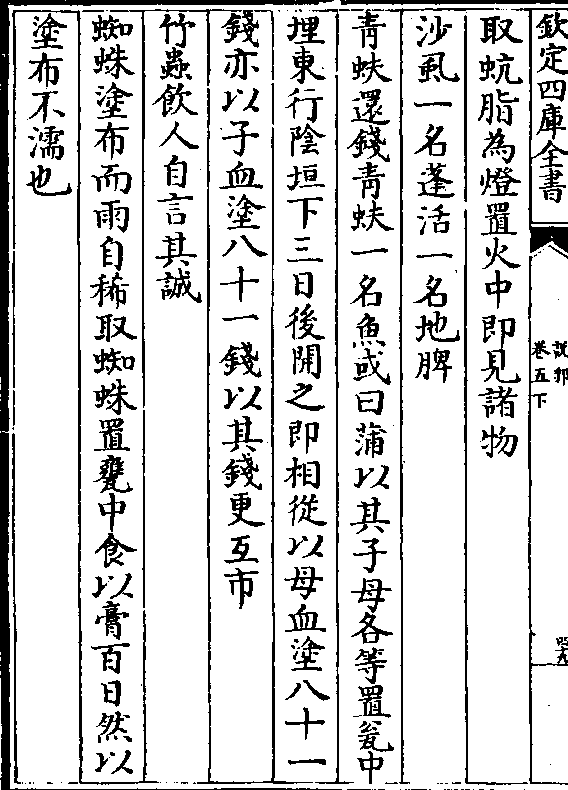 欽定四庫全書
說郛
卷五下
取蚢脂為燈置火中即見諸物
沙虱一名蓬活一名地脾
青蚨還錢青蚨一名魚或曰蒲以其子母各等置瓮中
埋東行隂垣下三日後開之即相從以母血塗八十一
錢亦以子血塗八十一錢以其錢更互市
竹蟲飲人自言其誠
蜘蛛塗布而雨自稀取蜘蛛置甕中食以膏百日然以
塗布不濡也